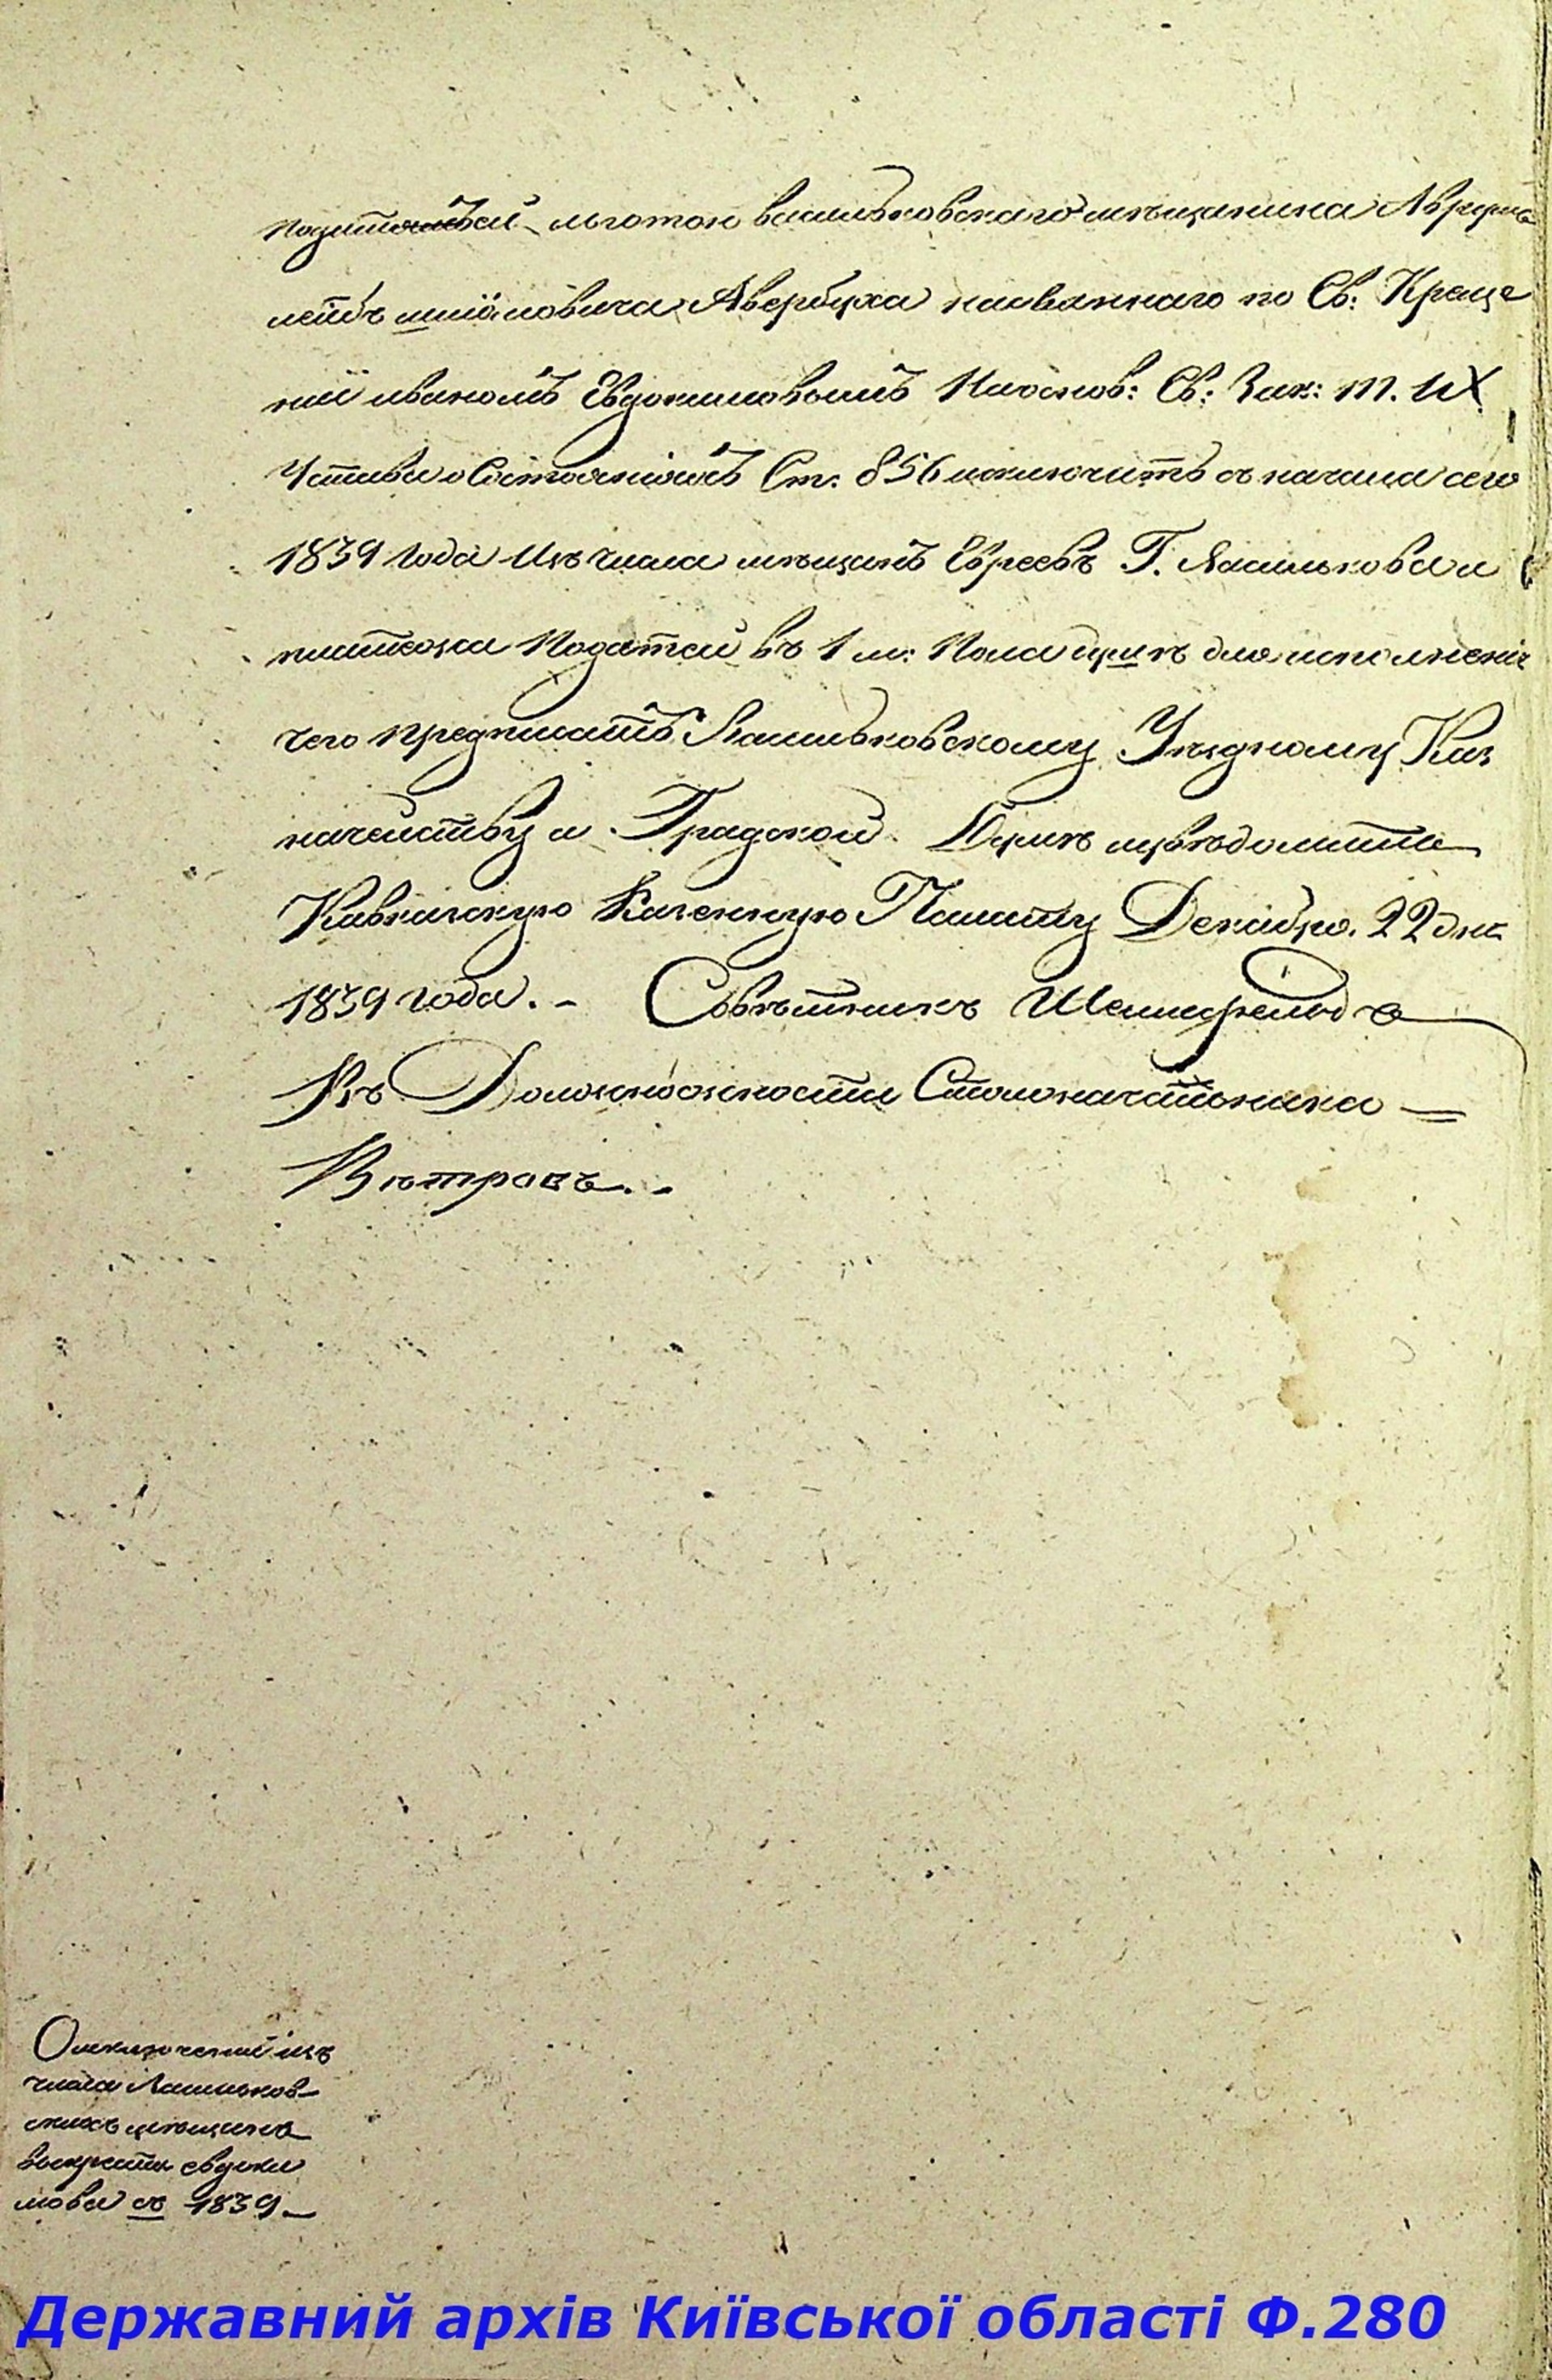 льготою васильковскаго мѣщанина
Авербуха названнаго по Св: Креще
ніи иваномъ Евдокимовымъ На основ: Св: Зак: т. IX
Устава о Состояніяхъ Ст. 856 исключить съ начала сего
1839 Года Изъ числа мѣщанъ Евреевъ Г. Василькова и
платежа Податей въ 1 м: Пола душѣ для исполненія
чего предписать Васильковскому Уѣздному Каз
начейству и Градской Думѣ увѣдомить
Кавказскую Казенную Палату Декабря. 22 дня
1839 года. – Совѣтникъ
Въ Должности Столоначальника
Вѣтровъ. –
О исключеніи изъ
числа Васильков-
скихъ мѣщанъ
выкреста евдоки
мова съ 1839 –
Державний архів Київської області Ф.280